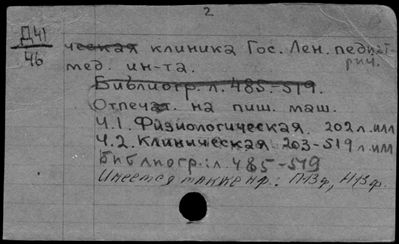 2
Д41
46
ческая клиника Гос. Лен. педиат-
рич.
мед. ин-та.
Библиогр. л. 485-519.
Отпечат. на пиш. маш.
Ч.1. Физиологическая. 202 л. илл
Ч.2. Клиническая 203-519 л. илл
Библиогр.: л. 485-519
Имеется также нр.: П13ф, Н13ф.